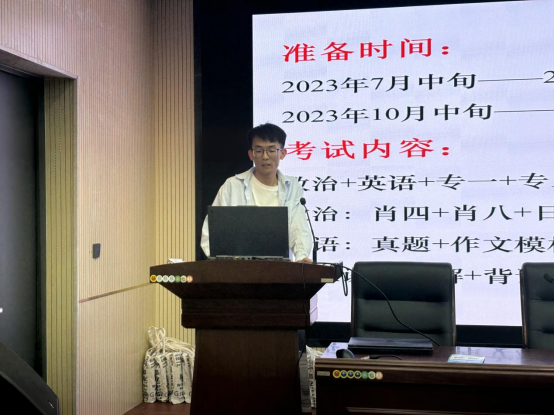 准备时间：
2023年7月中旬——2
2023年10月中旬——
考试内容：
政治+英语+专一+专
治：肖四+肖八+
语：真题+作文模
+背